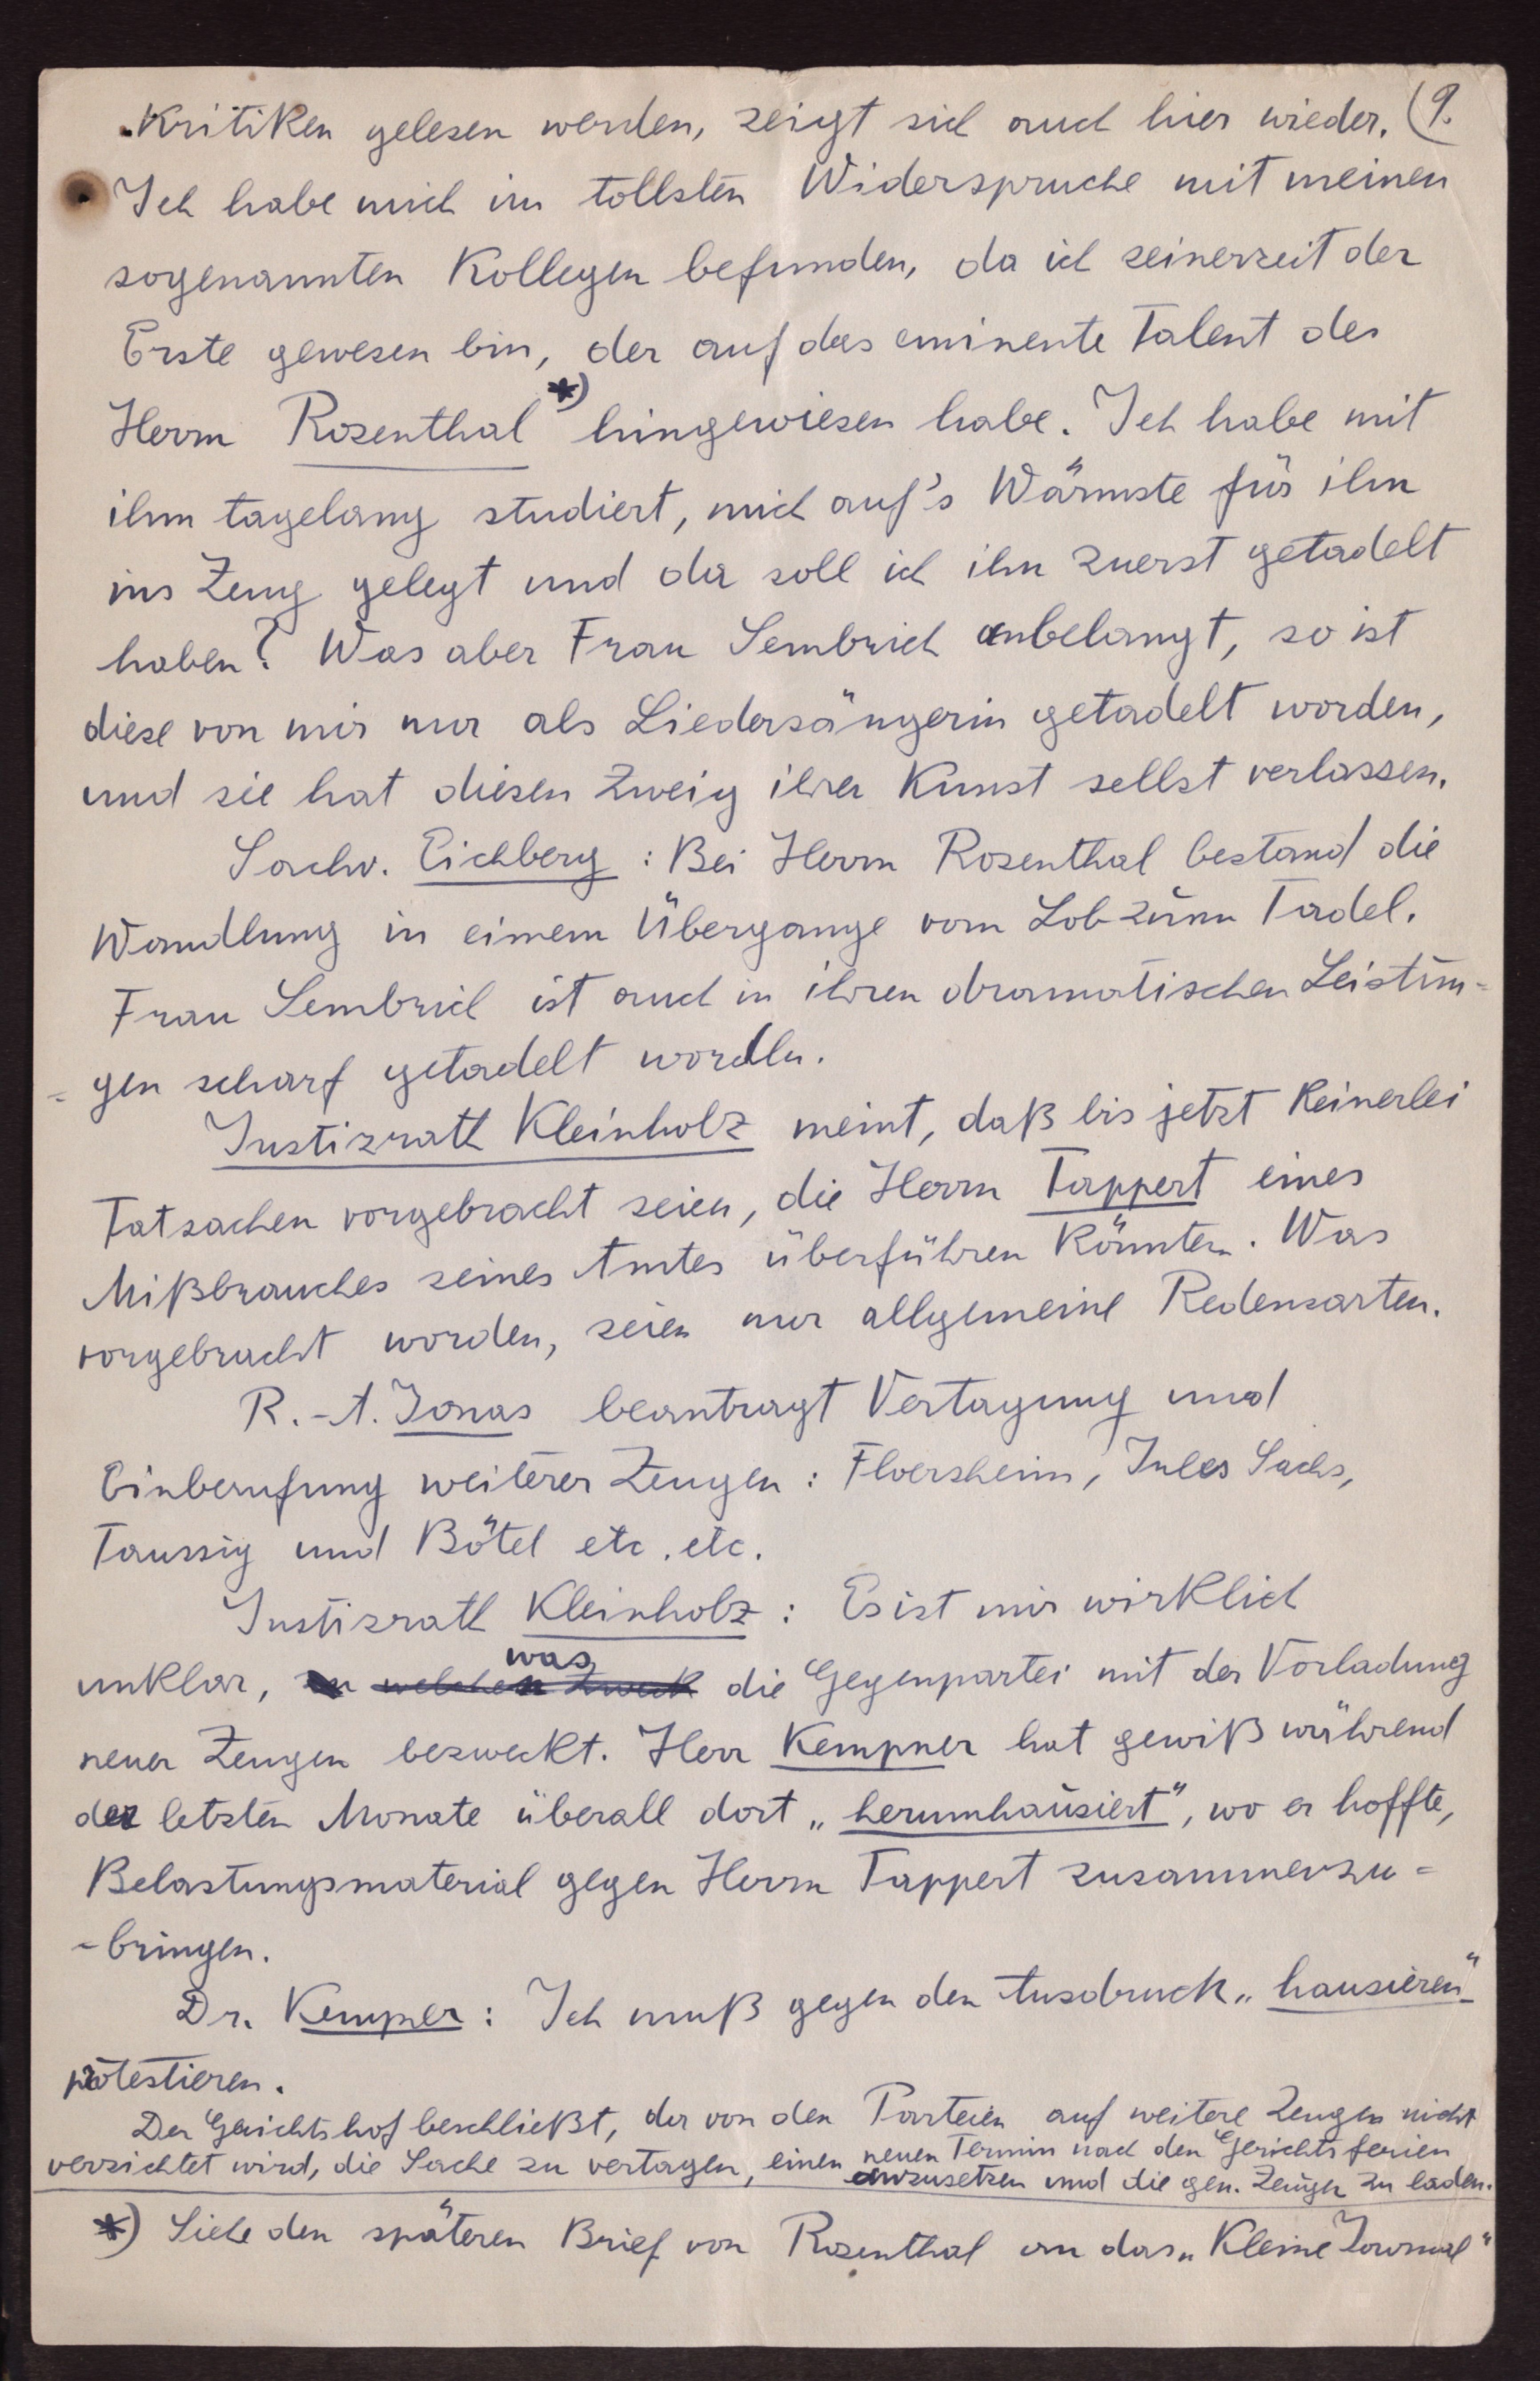 Kritiken gelesen werden, zeigt sich auch hier wieder. (9.
Ich habe mich im tollsten Widerspruche mit meinen
sogenannten Kollegen befunden, da ich seinerzeit der
Erste gewesen bin, der auf das eminente Talent des
Herrn Rosenthal *) hingewiesen habe. Ich habe mit
ihm tagelang studiert, mich auf's Wärmste für ihn
ins Zeug gelegt und da soll ich ihn zuerst getadelt
haben? Was aber Frau Sembrich anbelangt, so ist
diese von mir nur als Liedersängerin getadelt worden,
und sie hat diesen Zweig ihrer Kunst selbst verlassen.
Sachv. Eichberg : Bei Herrn Rosenthal bestand die
Wandlung in einem Übergange vom Lob zum Tadel.
Frau Sembrich ist auch in ihren dramatischen Leistun=
=gen scharf getadelt worden.
Justizrath Kleinholz meint, daß bis jetzt keinerlei
Tatsachen vorgebracht seien, die Herrn Tappert eines
Mißbrauches seines Amtes überführen könnten. Was
vorgebracht worden, seien nur allgemeine Redensarten.
R.-A. Jonas beantragt Vertagung und
Einberufung weiterer Zeugen : Floersheim, Jules Sachs,
Taussig und Bötel etc. etc.
Justizrath Kleinholz : Es ist mir wirklich
was
unklar, zu welchen Zweck die Gegenpartei mit der Vorladung
neuer Zeugen bezweckt. Herr Kempner hat gewiß während
der letzten Monate überall dort „herumhausiert“, wo er hoffte,
Belastungsmaterial gegen Herrn Tappert zusammenzu=
-bringen.
Dr. Kempner : Ich muß gegen den Ausdruck „hausieren“
protestieren.
Der Gerichtshof beschließt, da von den Parteien auf weitere Zeugen nicht
verzichtet wird, die Sache zu vertagen, einen neuen Termin nach den Gerichtsferien
anzusetzen und die gen. Zeugen zu laden.
*) Siehe den späteren Brief von Rosenthal an das „Kleine Journal“